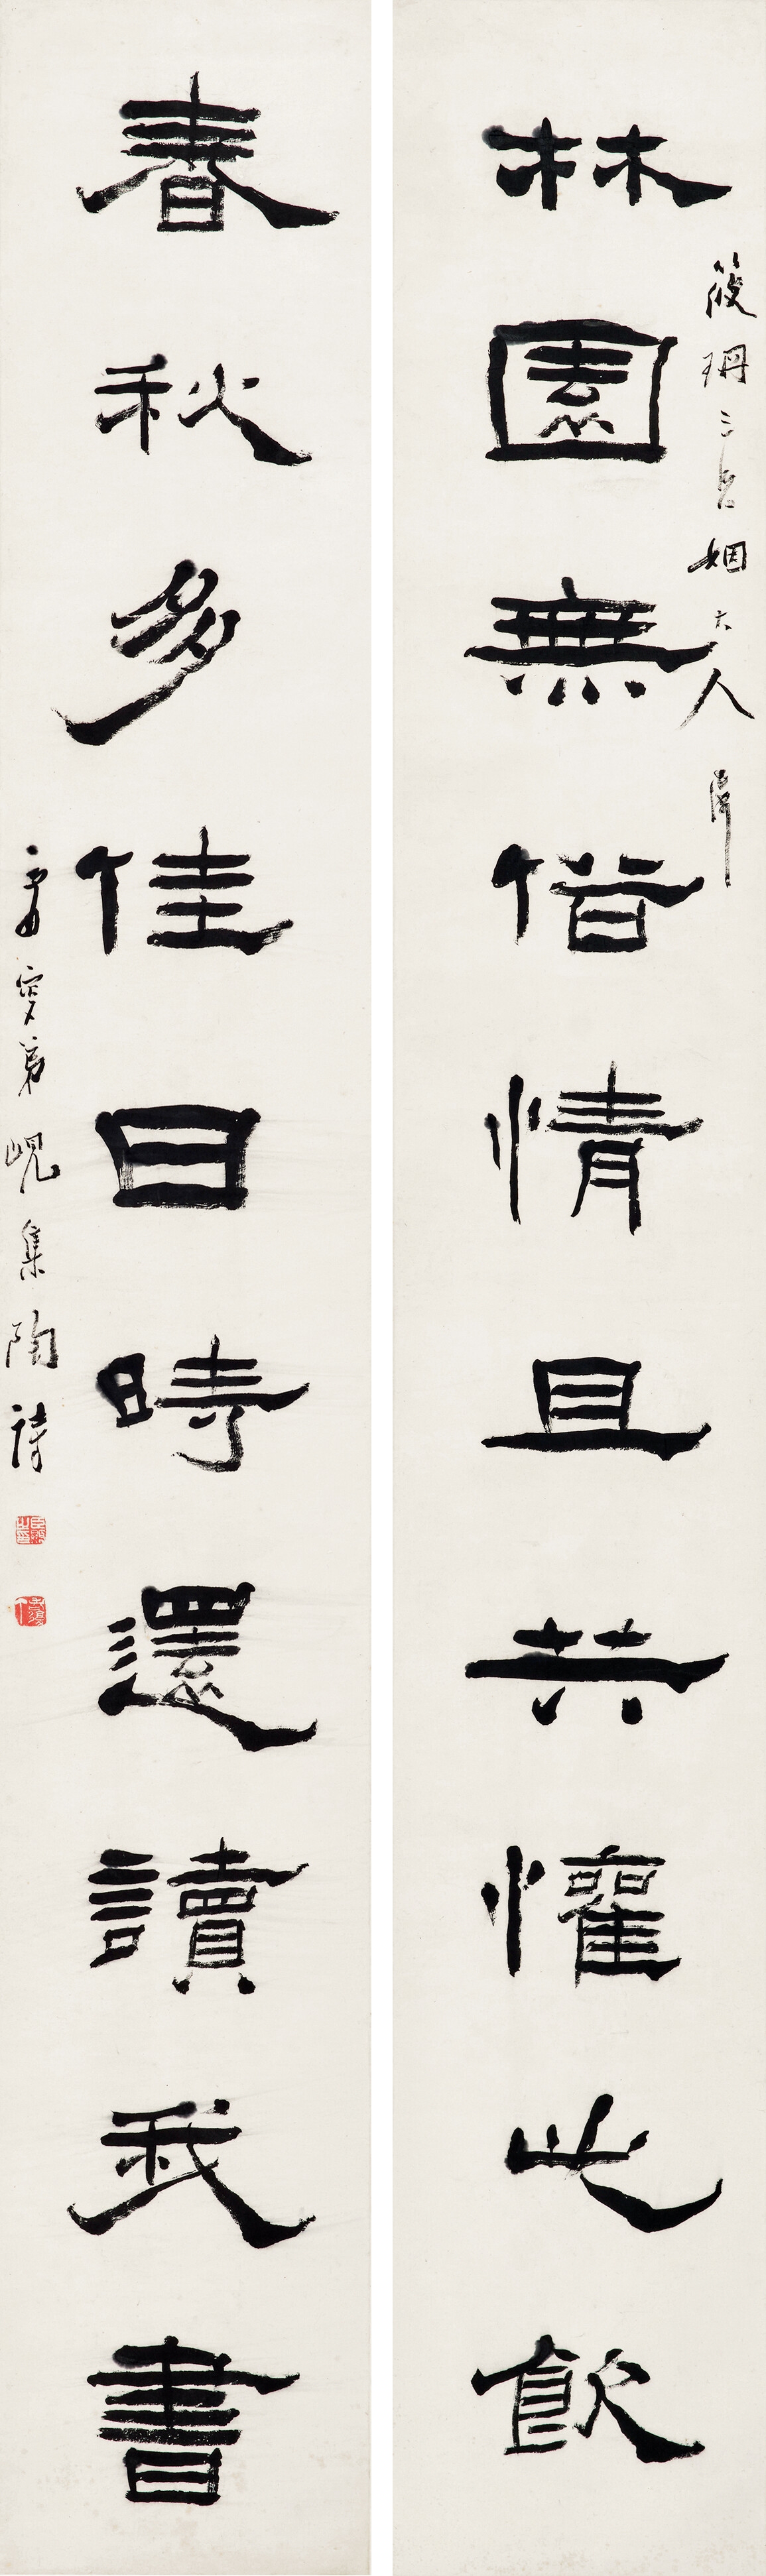 林園無俗情且共懽此飲
筱珊三 姻大人
春秋多佳日時還讀我書
弟峴集陶詩